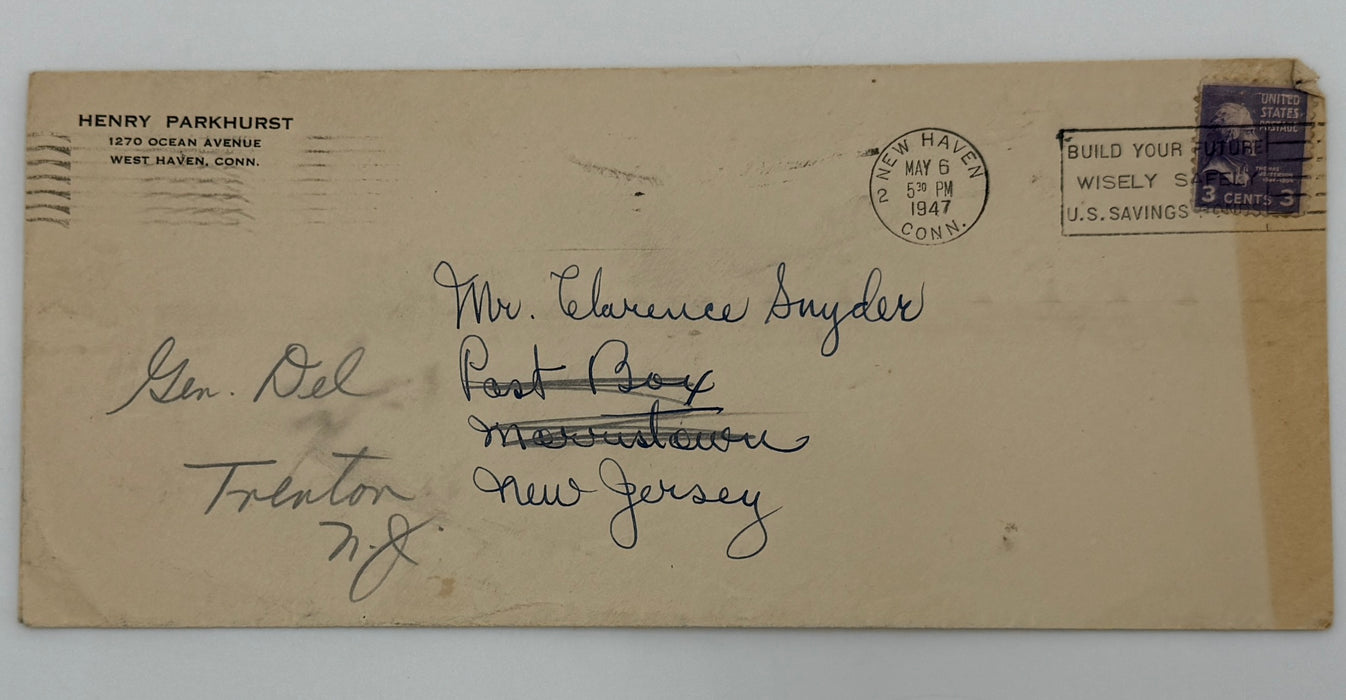 HENRY PARKHURST
1270 OCEAN AVENUE
WEST HAVEN, CONN.
NEW HAVEN
2
MAY 6
5 30 PM
1947
CONN.
BUILD YOUR FUTURE
WISELY SAFELY
U.S. SAVINGS BONDS
UNITED
STATES
POSTAGE
THOMAS
JEFFERSON
3 CENTS 3
Mr. Clarence Snyder
Post Box
Morristown
New Jersey
Gen. Del
Trenton
N.J.